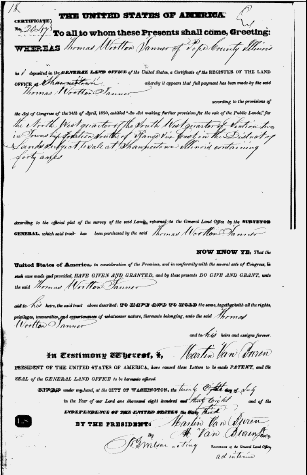 THE UNITED STATES OF AMERICA.
CERTIFICATE
To all to whom these Presents shall come, Greeting:
WHEREAS Thomas Wootton Tanner of Pope County Illinois
deposited in the GENERAL LAND OFFICE of the United States, a Certificate of the REGISTER OF THE LAND
OFFICE at Shawneetown whereby it appears that full payment has been made by the said
Thomas Wootton Tanner
according to the provisions
of the Act of Congress of the 24th of April, 1820, entitled "An act making further provision for the sale of the Public Lands," for
the North West quarter of the South West quarter of Section
in Township South of Range East in the District of
Lands subject to sale at Shawneetown Illinois containing
forty acres
according to the official plat of the survey of the said Lands, returned to the General Land Office by the SURVEYOR
GENERAL, which said tract has been purchased by the said Thomas Wootton Tanner
NOW KNOW YE, That the
United States of America, in consideration of the Premises, and in conformity with the several acts of Congress, in
such case made and provided, HAVE GIVEN AND GRANTED, and by these presents DO GIVE AND GRANT, unto
the said Thomas Wootton Tanner
and to his heirs, the said tract above described: TO HAVE AND TO HOLD the same, together with all the rights,
privileges, immunities, and appurtenances of whatsoever nature, thereunto belonging, unto the said Thomas
Wootton Tanner
and to his heirs and assigns forever.
In Testimony Whereof, I, Martin Van Buren
PRESIDENT OF THE UNITED STATES OF AMERICA, have caused these Letters to be made PATENT, and the
SEAL of the GENERAL LAND OFFICE to be hereunto affixed.
GIVEN under my hand, at the CITY OF WASHINGTON, the twenty eighth day of July
in the Year of our Lord one thousand eight hundred and thirty eight and of the
INDEPENDENCE OF THE UNITED STATES the sixty third
BY THE PRESIDENT: Martin Van Buren
By Van Buren
acting RECORDER of the General Land Office,
ad interim